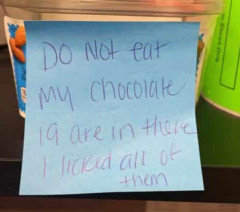 DO Not eat
My chocolate
19 are in there
I licked all of
them